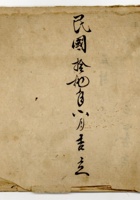 民國拾年八月吉立